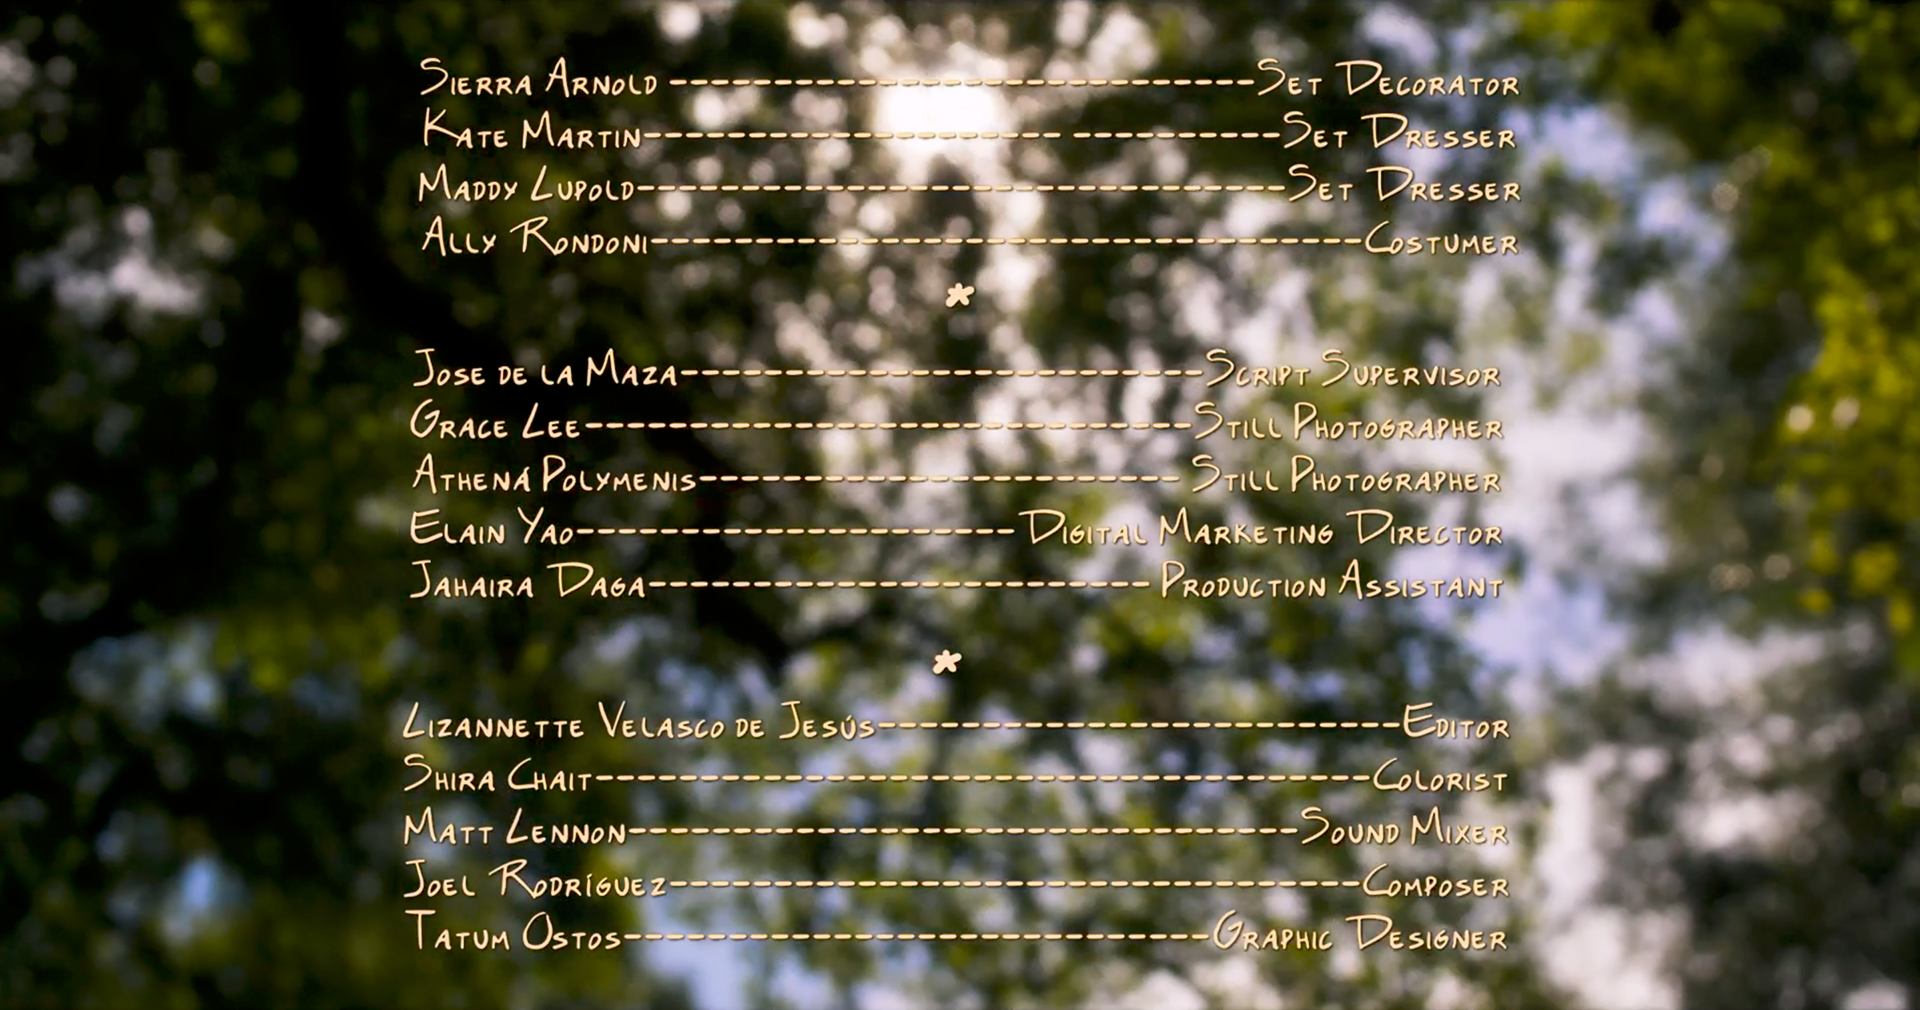 Sierra Arnold ----------------------------Set Decorator
Kate Martin-------------------- ----------Set Dresser
Maddy Lupold-------------------------------Set Dresser
Ally Rondoni----------------------------------Costumer
*
Jose de la Maza-------------------------Script Supervisor
Grace Lee-----------------------------Still Photographer
Athená Polymenis----------------------- Still Photographer
Elain Yao--------------------- Digital Marketing Director
Jahaira Daga------------------------ Production Assistant
*
Lizannette Velasco de Jesús-------------------------Editor
Shira Chait-------------------------------------Colorist
Matt Lennon--------------------------------Sound Mixer
Joel Rodríguez---------------------------------Composer
Tatum Ostos----------------------------Graphic Designer